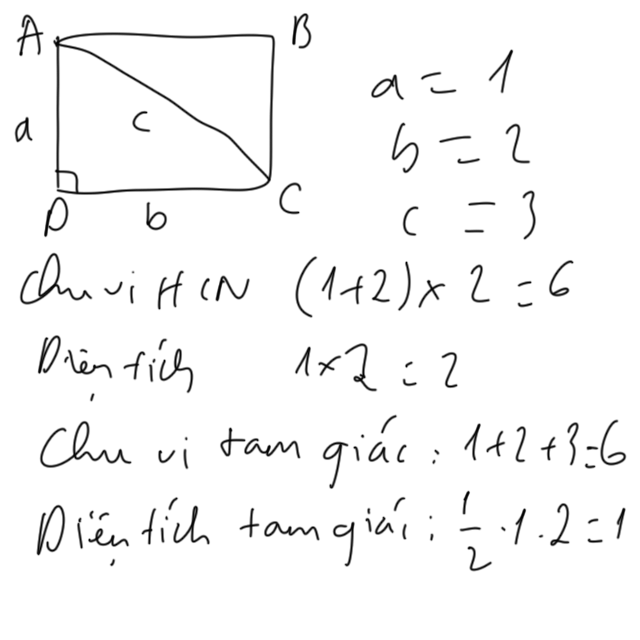 A B
a = 1
c
a
b = 2
D b C
c = 3
Chu vi HCN (1+2) x 2 = 6
Diện tích 1 x 2 = 2
Chu vi tam giác : 1+2+3=6
Diện tích tam giác : 1/2 . 1 . 2 = 1